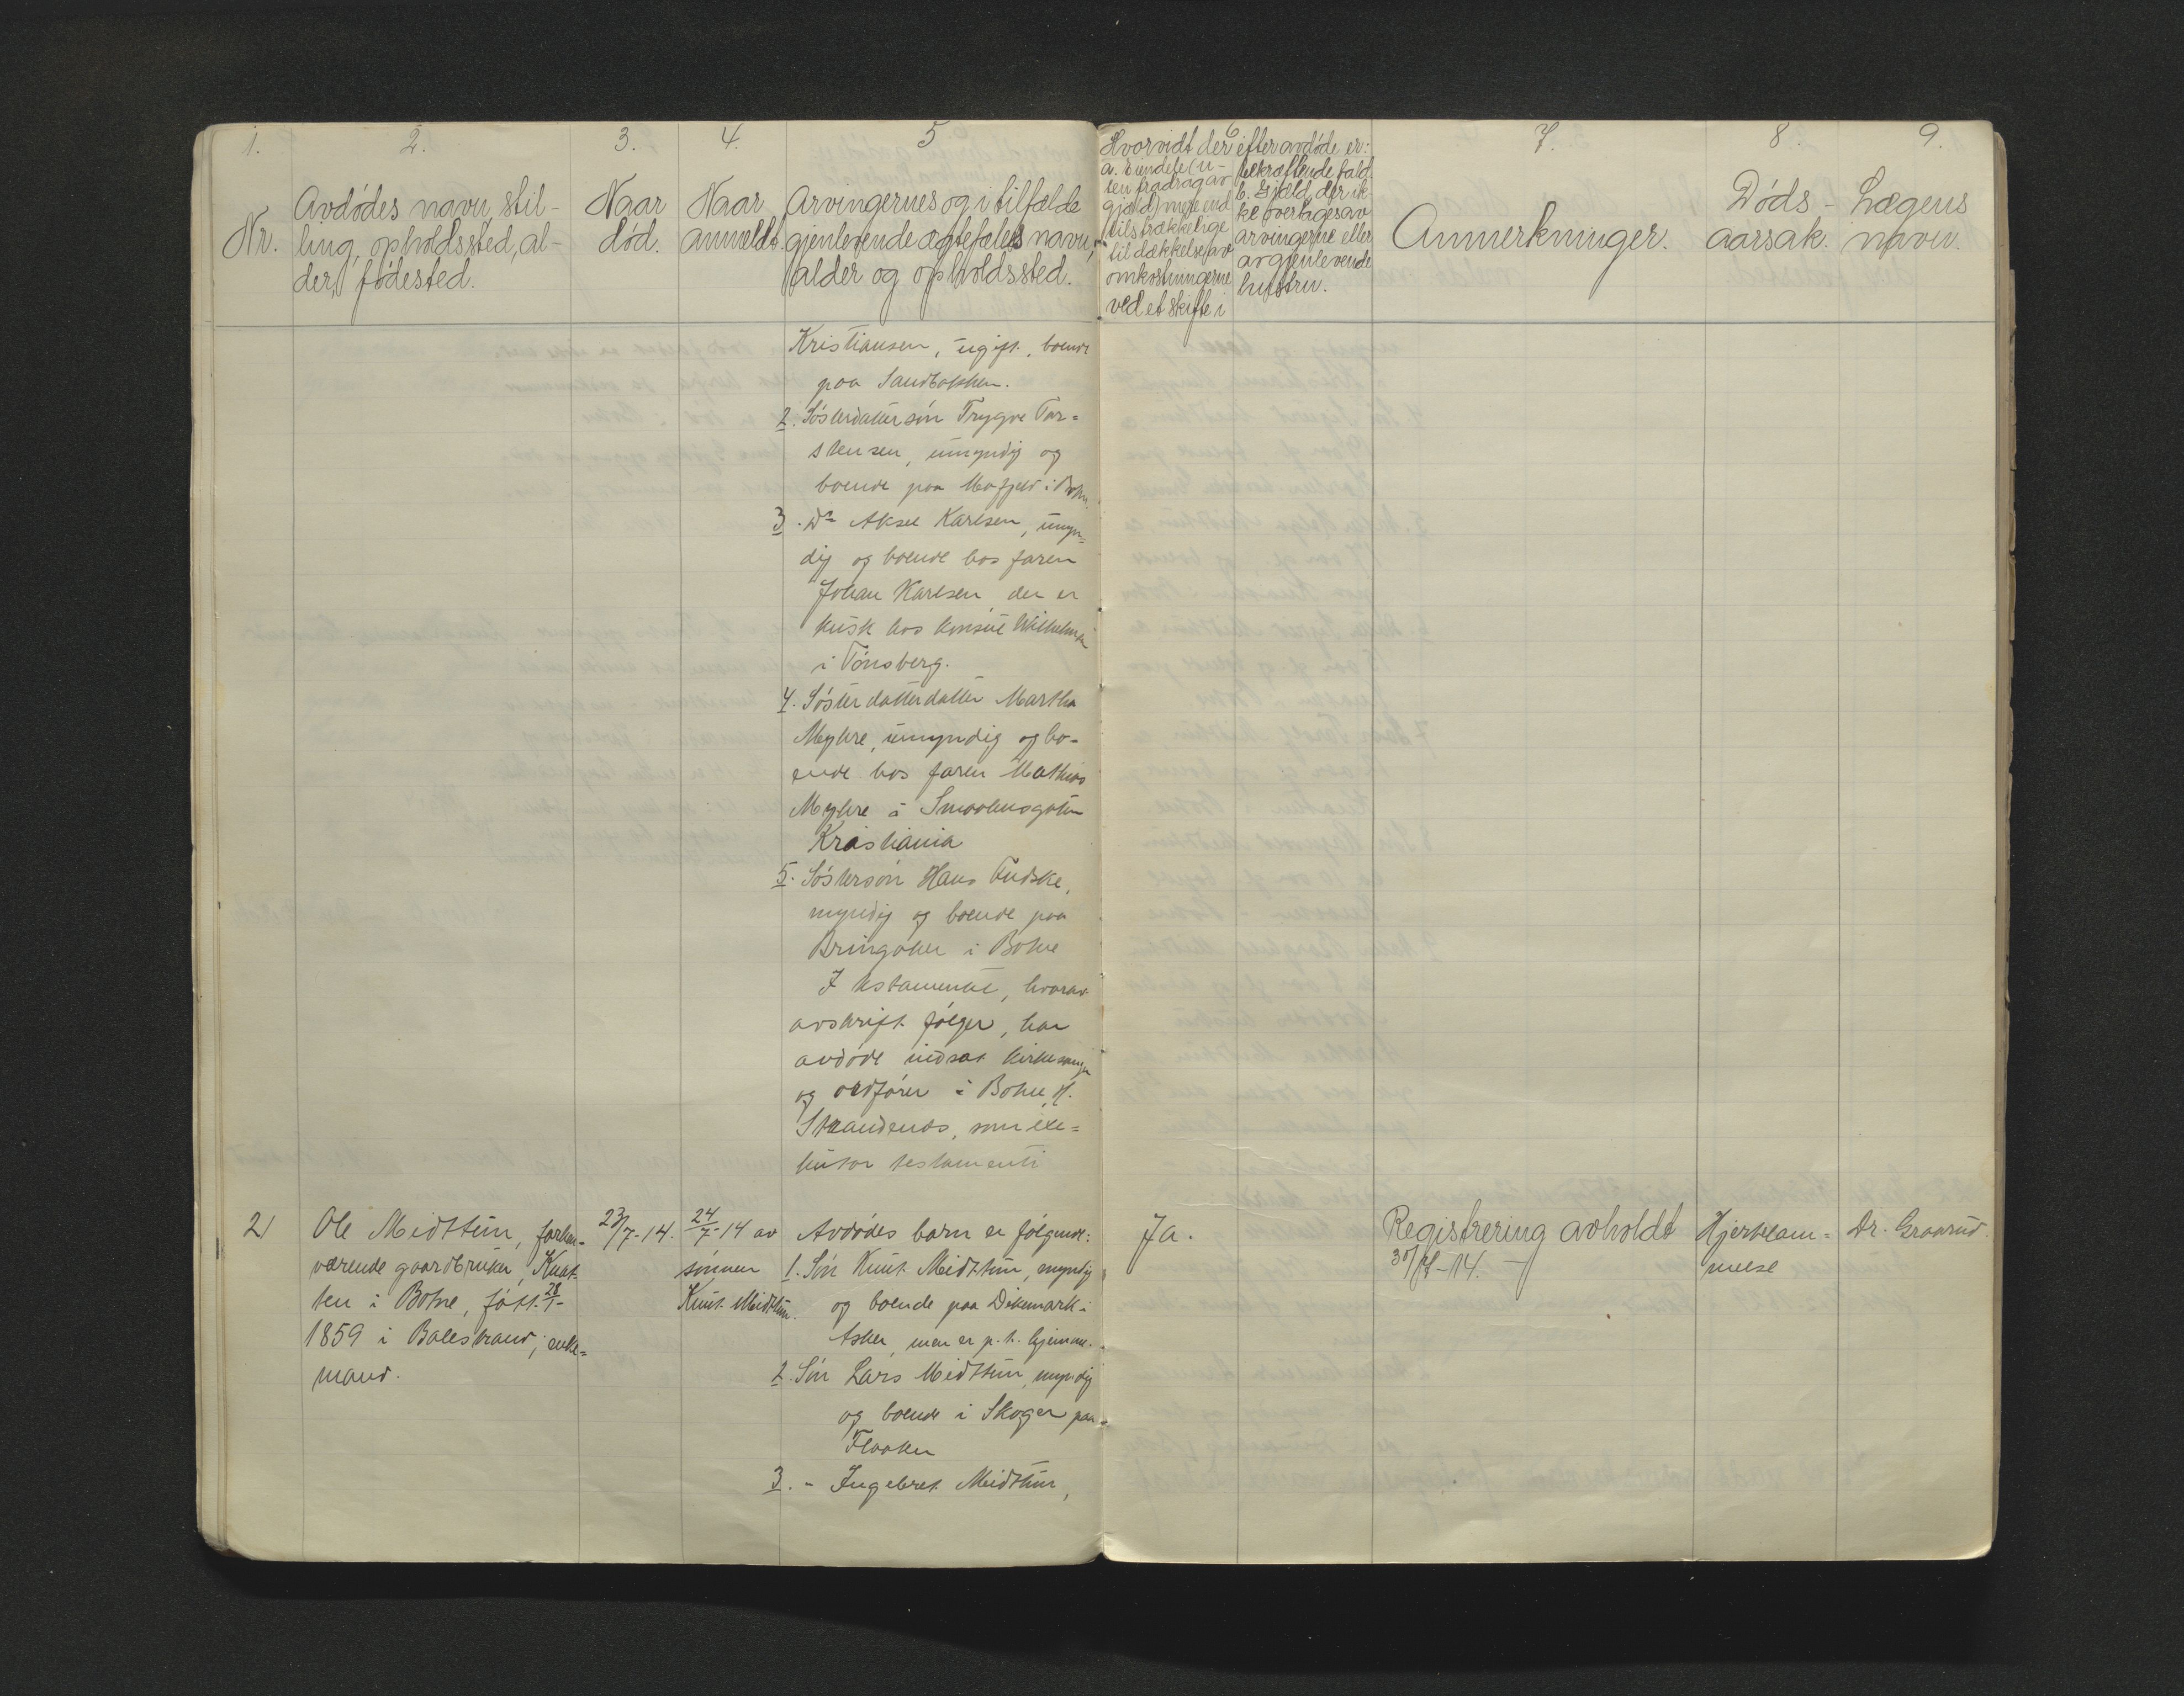 1.
2.
3.
4.
5
6
7.
8.
9.
Nr.
Avdødes navn, stil-
ling, opholdssted, al-
der, fødested.
Naar
død.
Naar
anmeldt.
Arvingernes og i tilfælde
gjenlevende ægtefælles navn,
alder og opholdssted.
Hvorvidt der efter avdøde er:
a. Eiendele (u-
ten fradrag av
gjæld) mere end
tilstrækkelige
til dækkelse av
omkostningerne
ved et skifte i
bekræftende fald
b. Gjæld, der ik-
ke overtages av
arvingerne eller
av gjenlevende
hustru.
Anmerkninger.
Døds-
aarsak.
Lægens
navn.
Kristiansen, ugift, boende
paa Sandbakken.
2. Søsterdattersøn Trygve Tor=
stensen, umyndig og
boende paa i Botne.
3. Do Aksel Karlsen, umyn=
dig og boende hos faren
Johan Karlsen, der er
kusk hos konsul Wilhelmsen
i Tønsberg.
4. Søsterdatterdatter Martha
Myhre, umyndig og bo-
ende hos faren Mathias
Myhre i Smaalensgaten
Kristiania
5. Søstersøn Hans Tudske,
myndig og boende paa
Bringaker i Botne
I testamente, hvorav
avskrift følger, har
avdøde indsat kirkesanger
og ordfører i Botne, H.
Strandenæs, som exe=
kutor testamenti
2)
Ole Midttun, forhen-
værende gaardbruker,
i Botne, født 28/1-
1859 i Balestrand, enke=
mand.
23/7-14.
24/7-14 av
sønnen
Knut Midttun.
Avdødes barn er følgende:
1. Søn Knut Midttun, myndig
og boende paa Dikemark i
Asker, men er p.t. hjemme.
2. Søn Lars Midttun, myndig
og boende i Skoger paa
Flaaten
3. - Ingebret Midttun,
Ja.
Registrering avholdt
30/7-14.
Hjertelam=
melse
Dr. Graarud